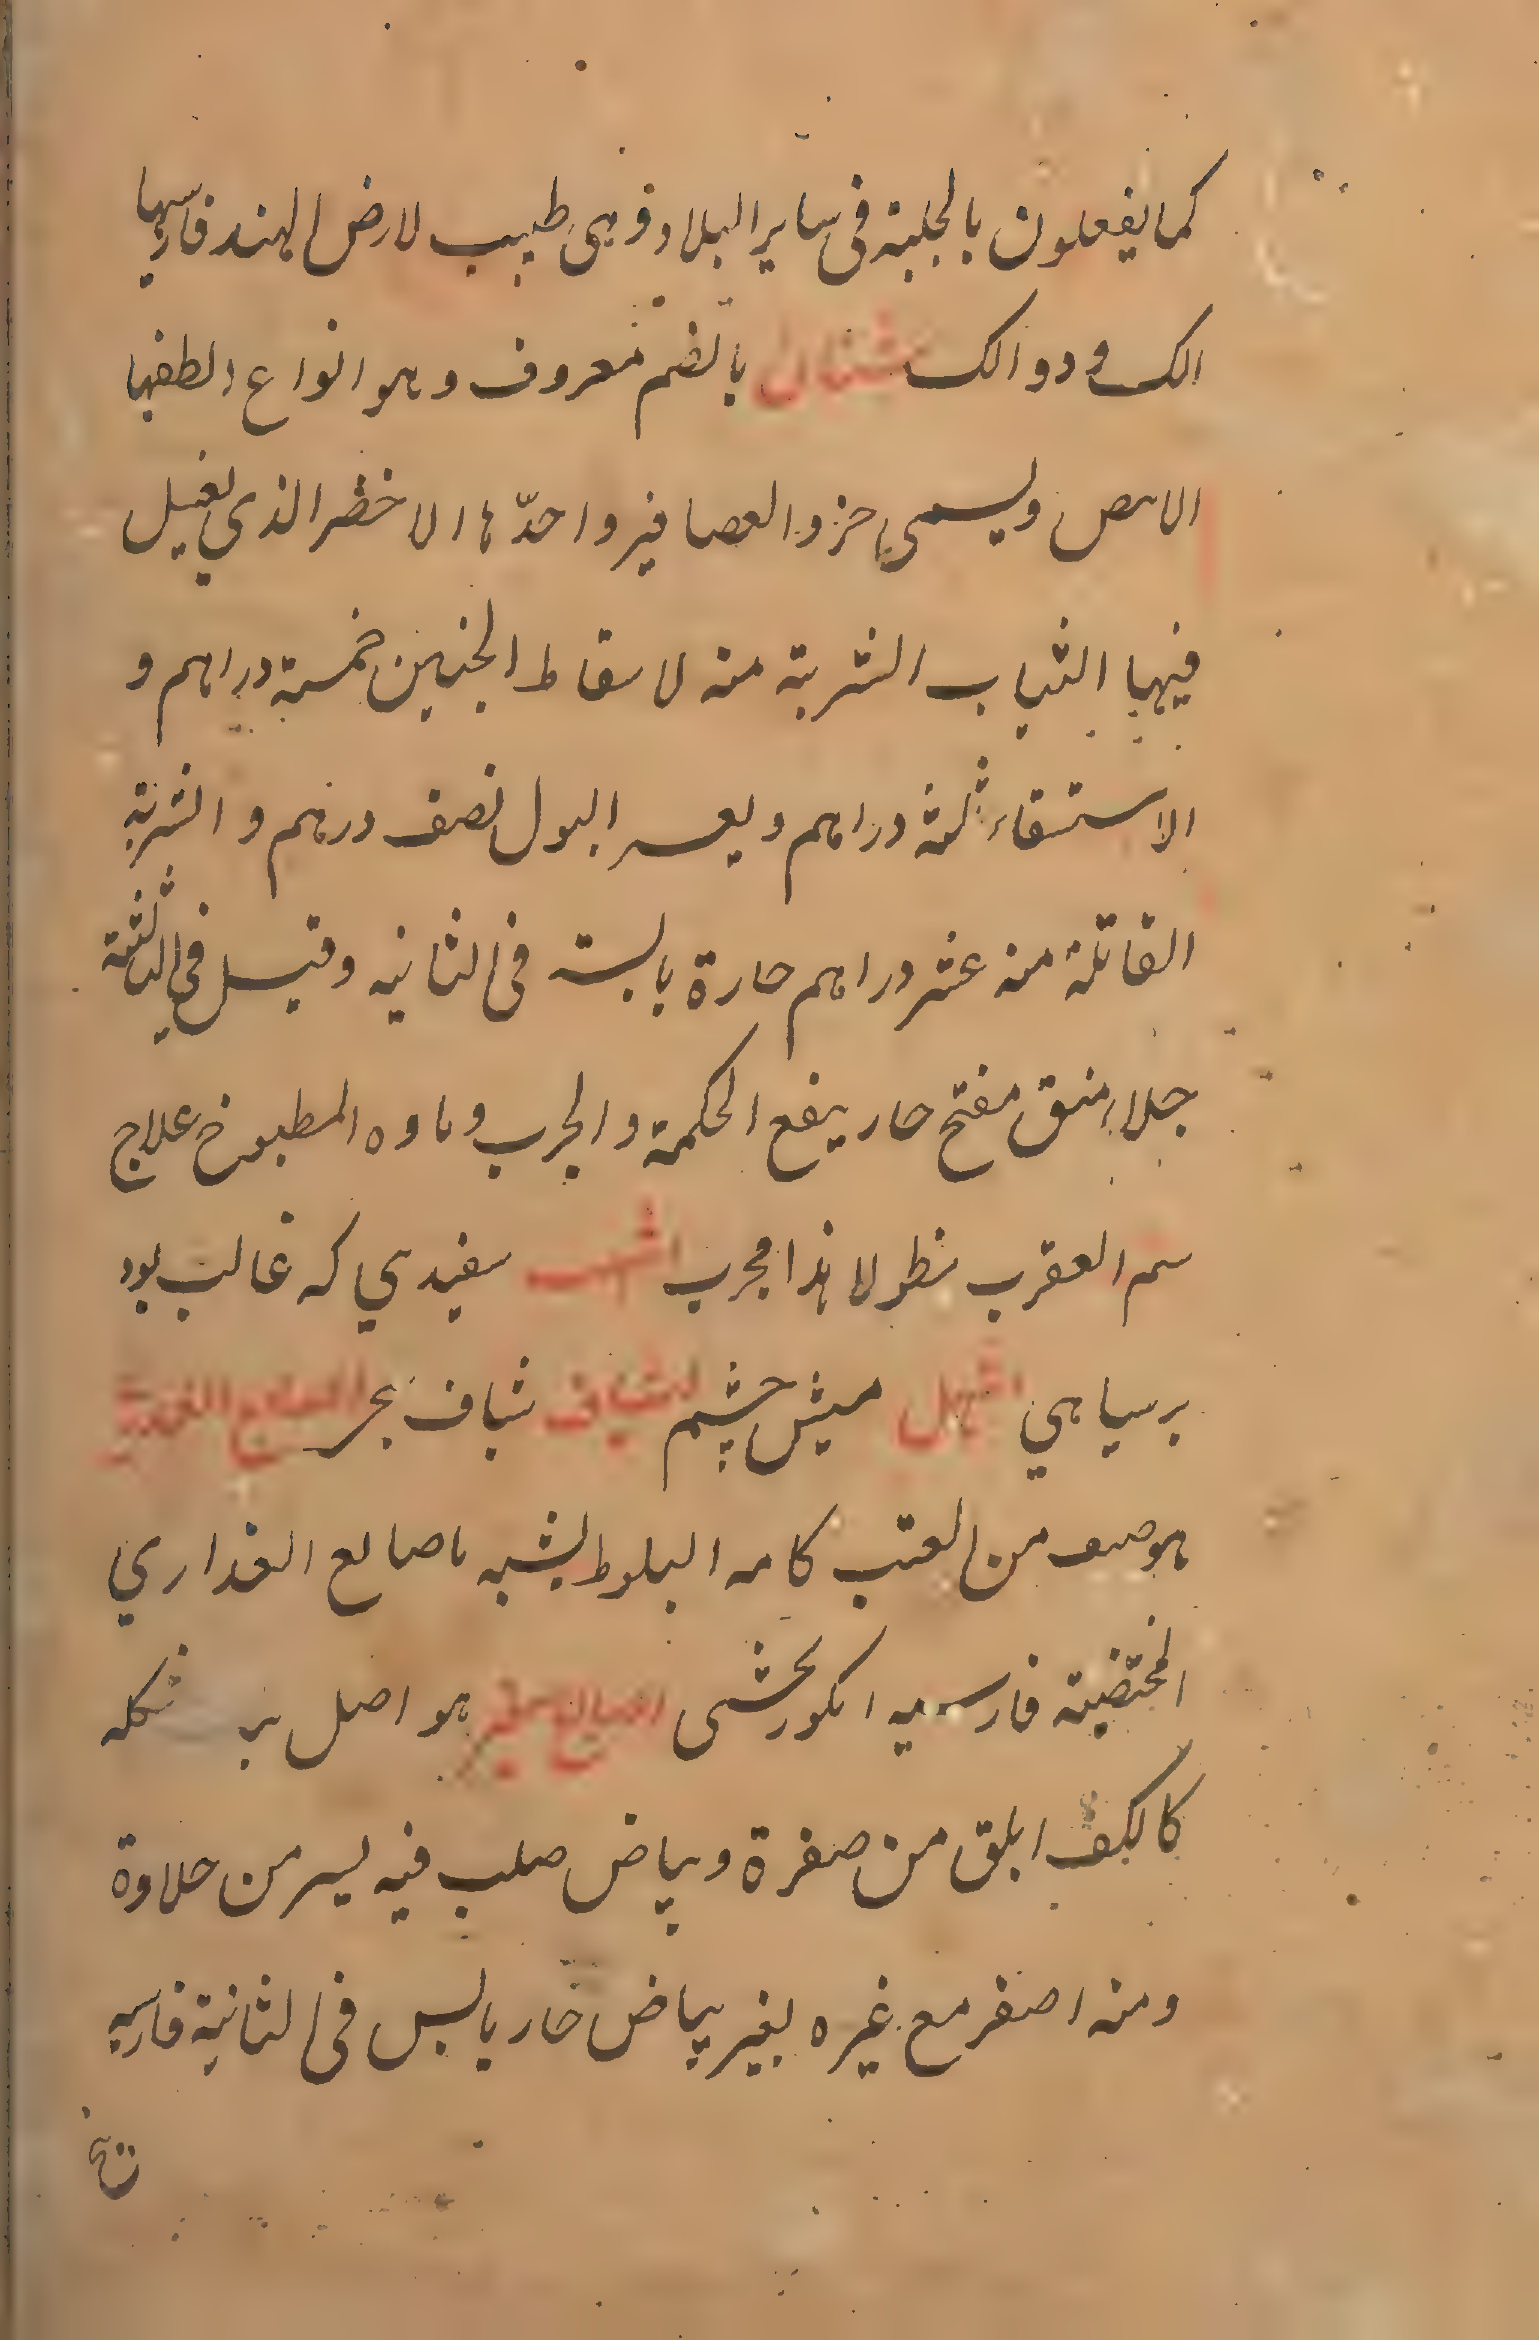 كما يفعلون بالجلبة فى ساير البلاد وهى طبيب لارض الهند فارسيها
الك و دوالك شنان بالضم معروف وهو انواع الطفها
الابيص ويسمى خرو العصافير واحدّها الاخضر الذي يغسل
فيها الثياب الشربة منه لاسقاط الجنين خمسة دراهم و
الاستسقاء ثلثة دراهم ويعسر البول نصف درهم والشربة
القاتلة منه عشر دراهم حارة يابسته فى الثانيه وقيل فى الثالثة
جلاء منق مفتح حار ينفع الحكمة والجرب وماوه المطبوخ علاج
سم العقرب نطولا هذا مجرب اشهب سفيدي كه غالب بود
برسياهي اشهل ميش چشم اشياف شياف بحر اصابع العذارى
هو صنف من العنب كامه البلوط يشبه باصابع العذاري
المختضبة فارسيه انكور اصابع صفر هو اصل بر شكله
كالكف ابلق من صفرة وبياض صلب فيه يسر من حلاوة
ومنه اصفر مع غيره بغير بياض حار يابس فى الثانية فارسيه